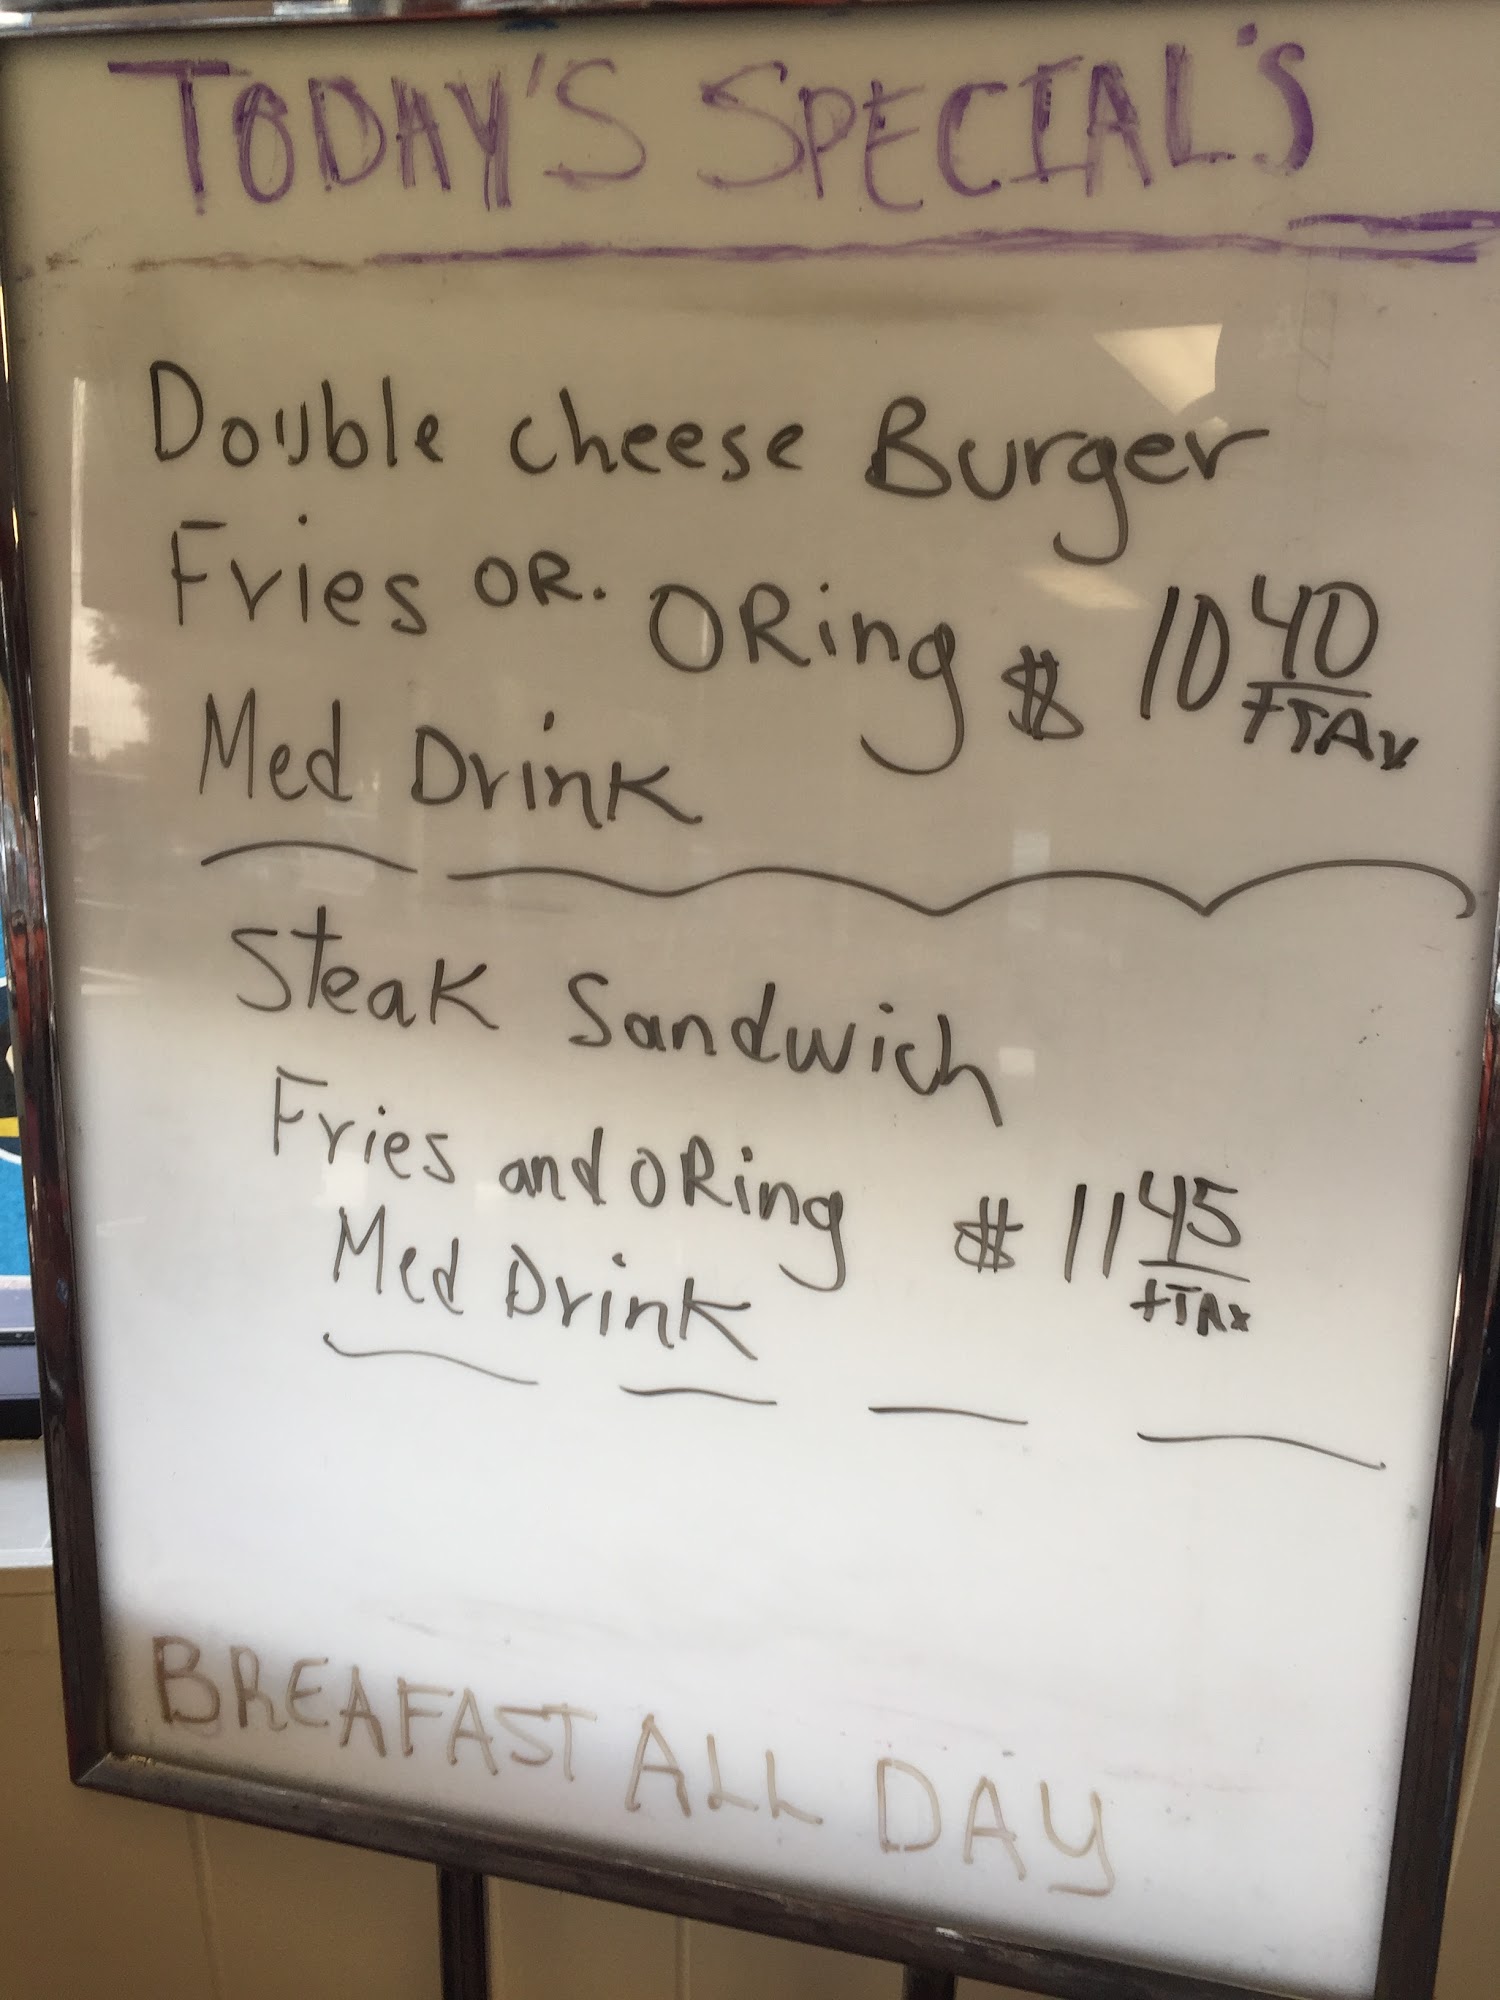 TODAY'S SPECIAL'S
Double cheese Burger
Fries OR. ORing $ 10 40
+TAX
Med Drink
Steak Sandwich
Fries and ORing $ 11 45
+TAX
Med Drink
BREAFAST ALL DAY